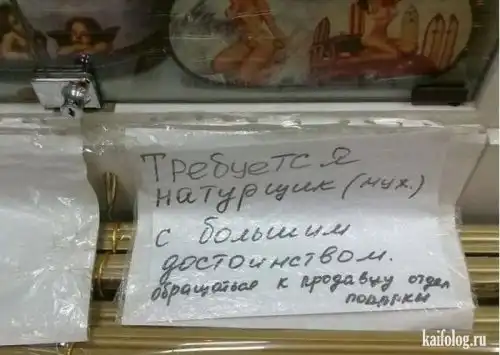 Требуется
натурщик (муж.)
с большим
достоинством.
обращаться к продавцу отдел
подарки
kaifolog.ru